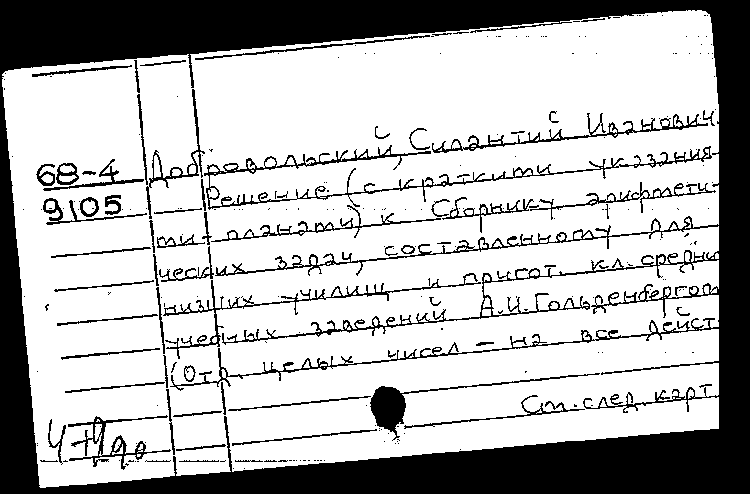 68-4
9105
Добровольский, Силантий Иванович.
Решение (с краткими указания-
ми-планами) к Сборнику арифмети-
ческих задач, составленному для
низших училищ и пригот. кл. средни
учебных заведений А.И.Гольденбергом
(Отд. целых чисел - на все дейст
См. след. карт